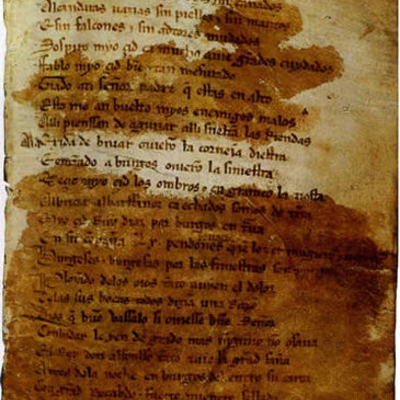 Alcandaras uazias sin pielles τ sin mantos
E sin falcones τ sin adtores mudados
Sospiro myo çid ca mucho auie grãdes cuydados
Fablo myo çid biẽ τ tan mesurado
Grado ati señor padre q̃ estas en alto
Esto me an buelto myos enemigos malos
Alli pienssan de aguijar alli sueltã las Riendas
Ala exida de biuar ouierõ la corneja diestra
E entrãdo a burgos ouierõ la siniestra
Meçio myo çid los ombros τ en grameo la tiesta
Albriçia albarffanez ca echados somos de tierra
Myo çid Ruy diaz por burgos en traua
En su conpaña .Lx. pendones
Burgeses τ burgesas por las finiestras son
Plorando delos oios tãto auien el dolor
Delas sus bocas todos dizian una Razo
Dios q̃ buẽ vassalo si ouiesse buẽ Señor
Conbidar le yen de grado mas ninguno nõ osaua
El Rey don alfonsso tãto auie la grãd saña
Antes dela noche en burgos del entro su carta
Con grãd Recabdo τ fuerte mientre sellada